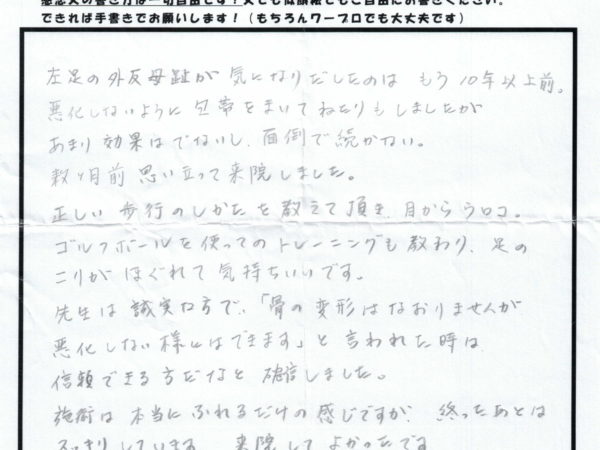 できれば手書きでお願いします！（もちろんワープロでも大丈夫です）
左足の外反母趾が気になりだしたのは もう10年以上前。
悪化しないように包帯をまいてねたりもしましたが
あまり効果はでないし、面倒で続かない。
数ヶ月前思い立って来院しました。
正しい歩行のしかたを教えて頂き、目からウロコ。
ゴルフボールを使ってのトレーニングも教わり、足の
コリがほぐれて気持ちいいです。
先生は誠実な方で、「骨の変形はなおりませんが
悪化しない様にはできます」と言われた時は
信頼できる方だなと確信しました。
施術は本当にふれるだけの感じですが、終ったあとは
スッキリしています。来院してよかったです